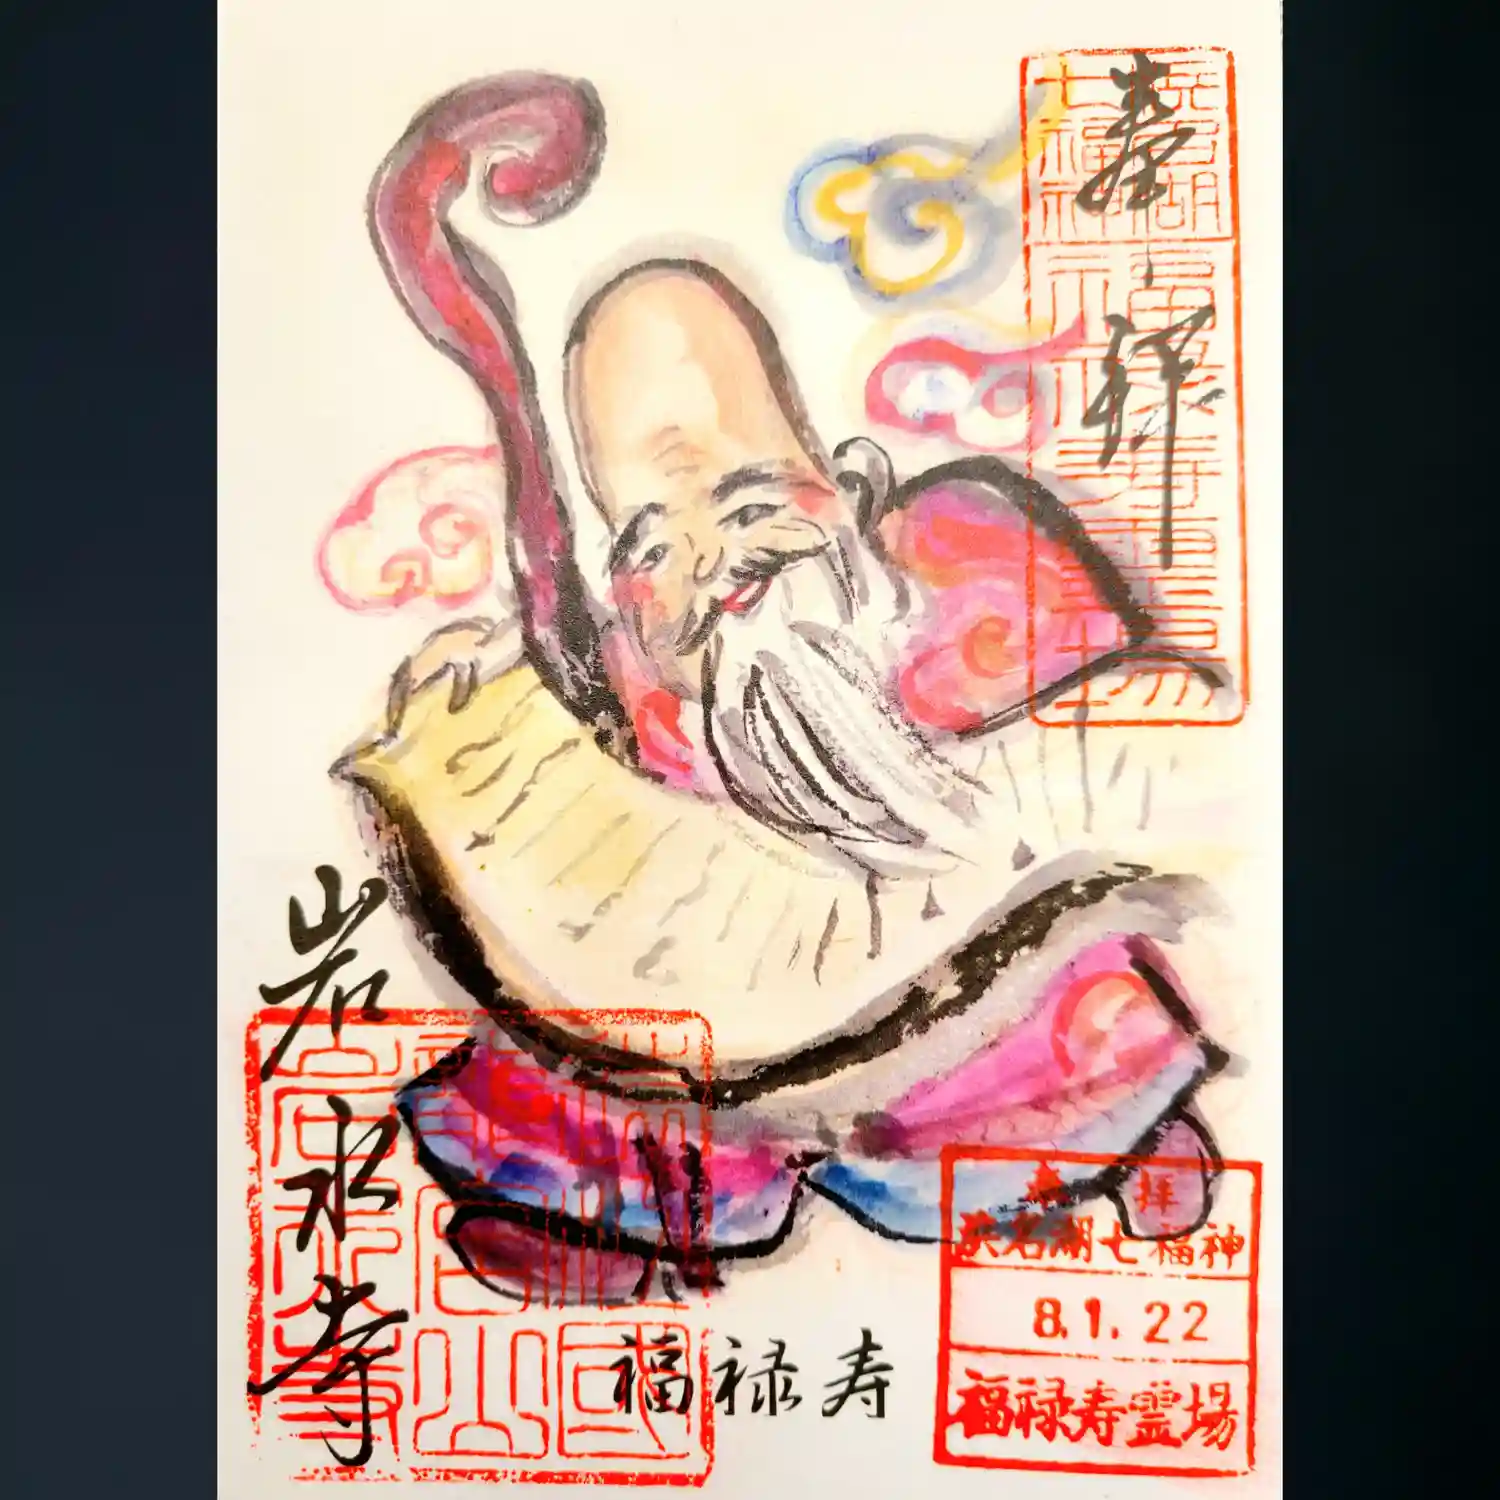 奉拝
浜名湖七福神
福禄寿霊場
岩水寺
福禄寿
奉拝
浜名湖七福神
8.1.22
福禄寿霊場